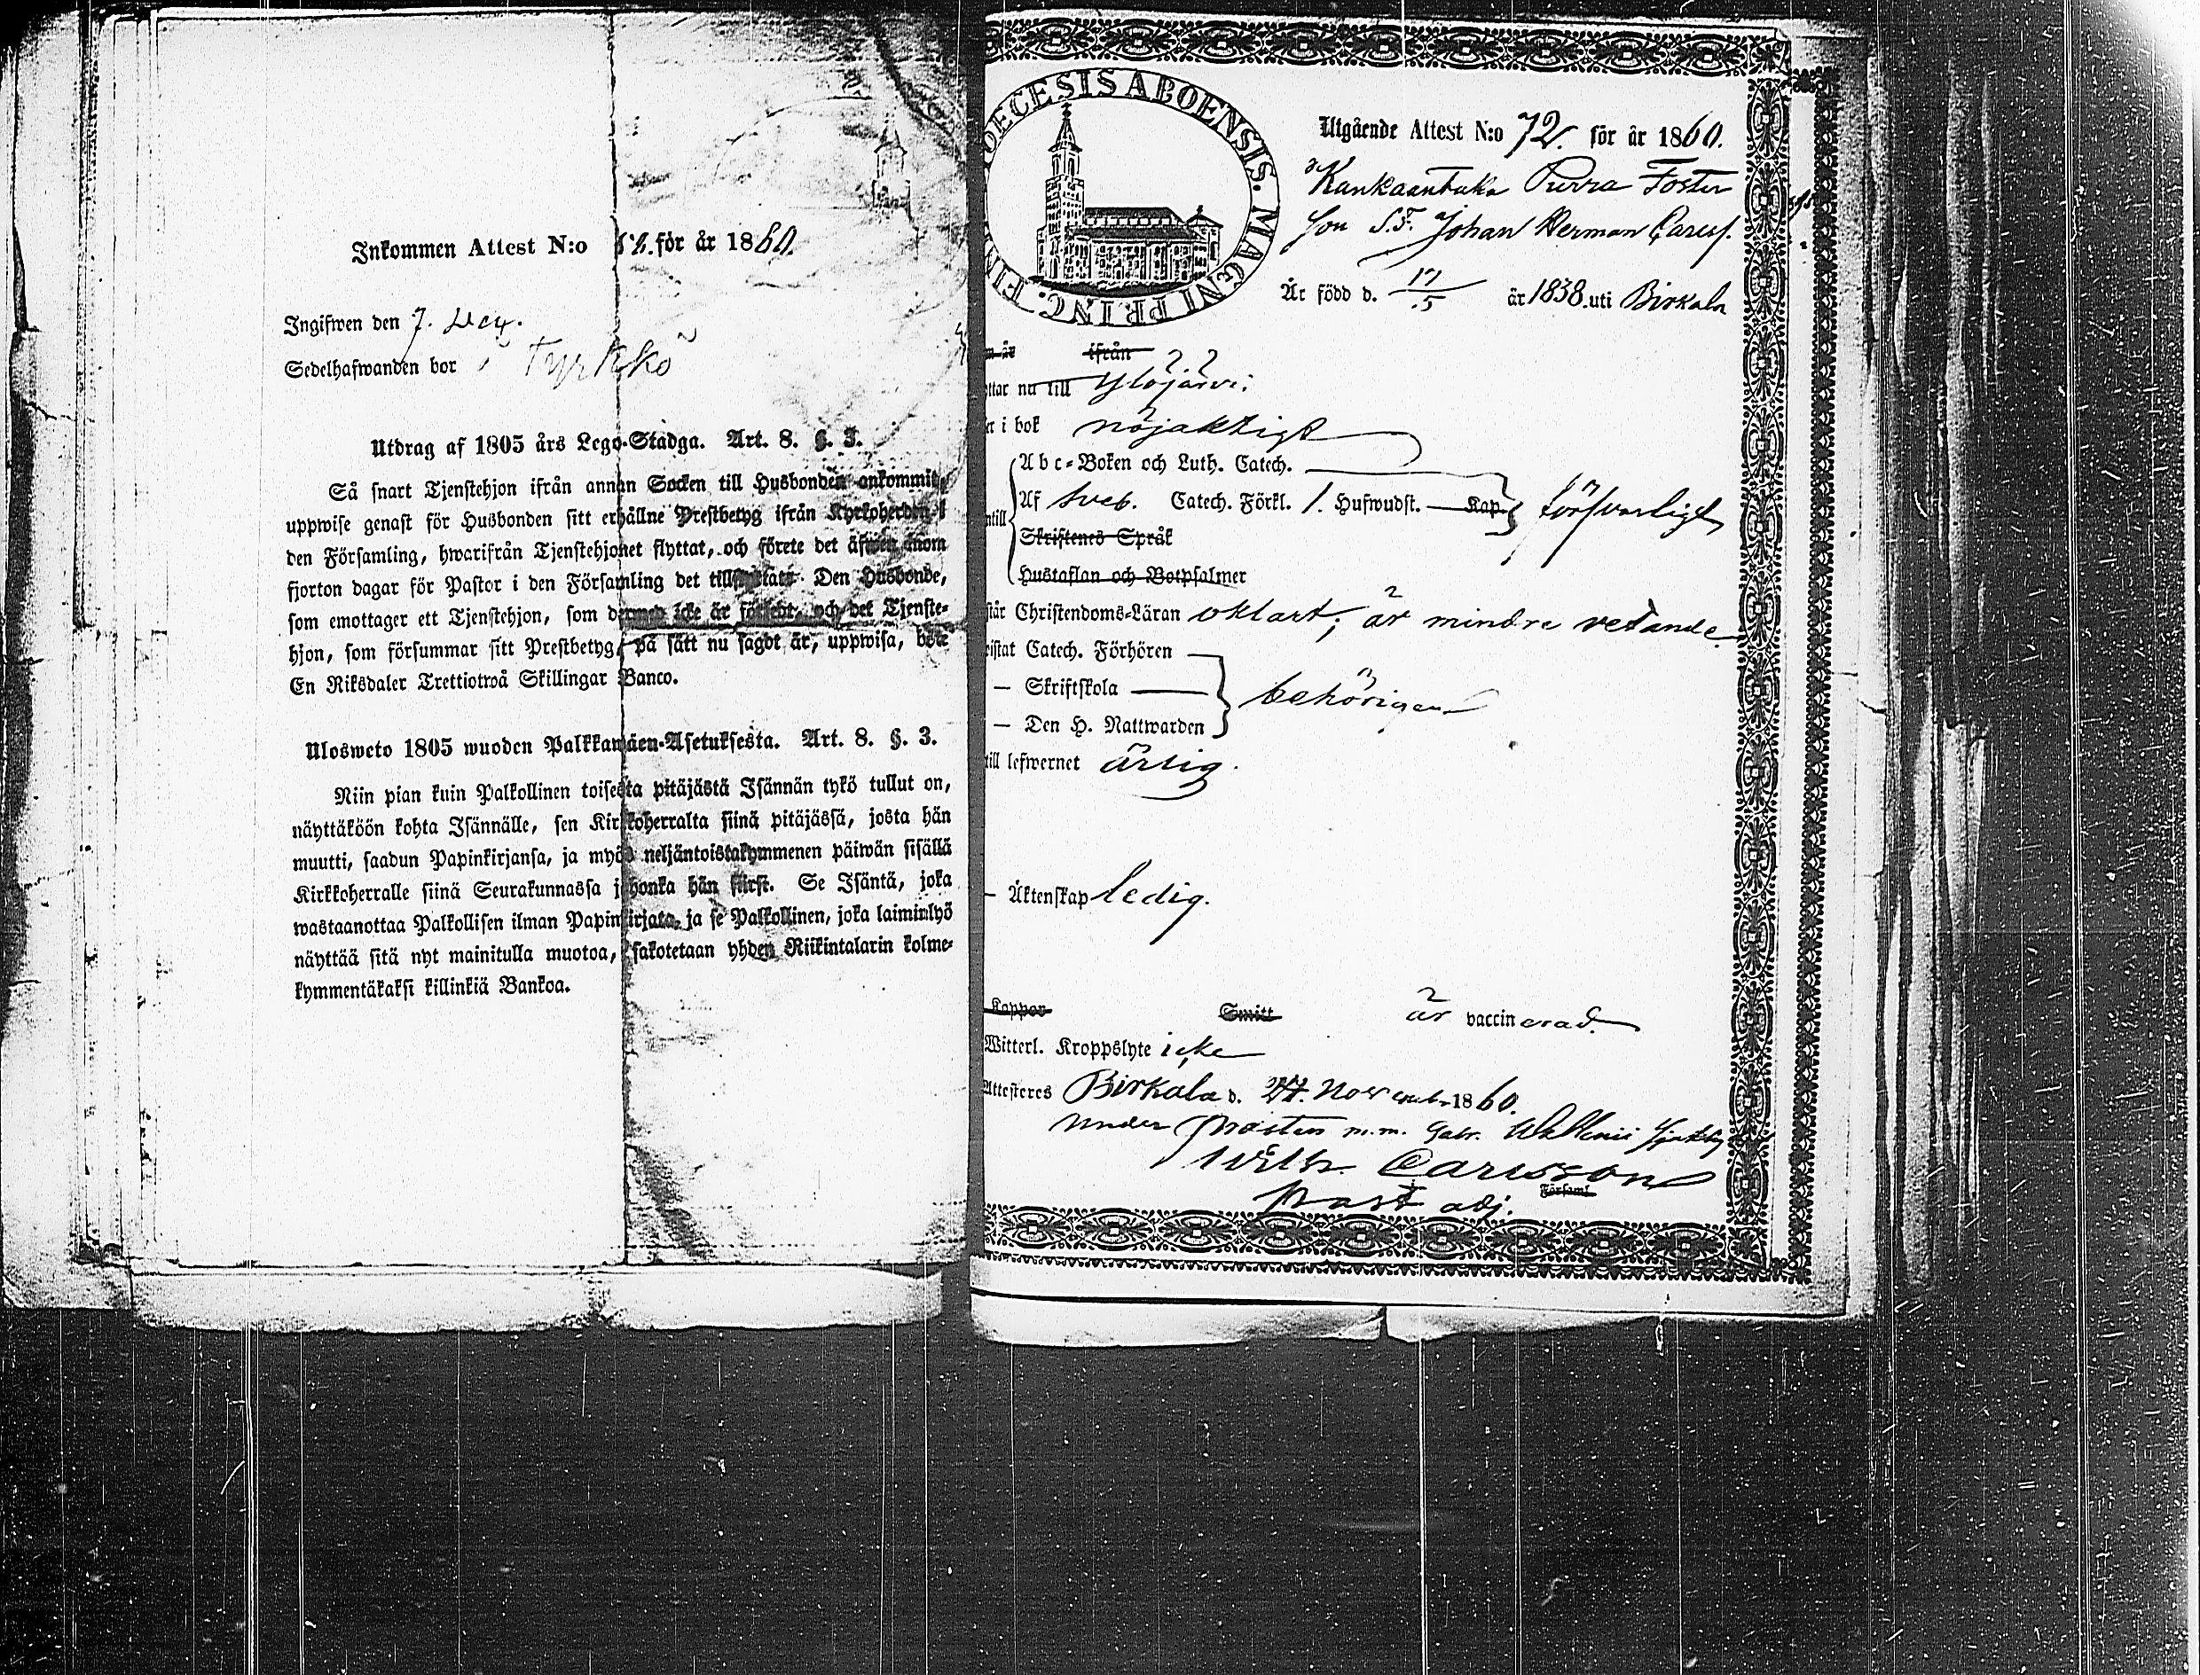 Inkommen Attest N:o för år 1860.
Ingifwen den 7. Dec.
Sedelhafwanden bor i Tyrkkö
Utdrag af 1805 års Lego-Stadga. Art. 8. §. 3.
Så snart Tjenstehjon ifrån annan Socken till Husbonden ankommit,
uppwise genast för Husbonden sitt erhållne Prestbetyg ifrån Kyrkoherden i
den Församling, hwarifrån Tjenstehjonet flyttat, och förete det äfwen inom
fjorton dagar för Pastor i den Församling det Den Husbonde,
som emottager ett Tjenstehjon, som dermed icke är försedt, och det Tjenste-
hjon, som försummar sitt Prestbetyg, på sätt nu sagdt är, uppwisa, böte
En Riksdaler Trettiotwå Skillingar Banco.
Ulosweto 1805 wuoden Palkkawäen-Asetuksesta. Art. 8. §. 3.
Niin pian kuin Palkollinen toisesta pitäjästä Isännän tykö tullut on,
näyttäköön kohta Isännälle, sen Kirkkoherralta siinä pitäjässä, josta hän
muutti, saadun Papinkirjansa, ja myös neljäntoistakymmenen päiwän sisällä
Kirkkoherralle siinä Seurakunnassa johonka hän siirsi. Se Isäntä, joka
wastaanottaa Palkollisen ilman Papinkirjata, ja se Palkollinen, joka laiminlyö
näyttää sitä nyt mainitulla muotoa, sakotetaan yhden Riikintalarin kolme-
kymmentäkaksi killinkiä Bankoa.
DECESIS ABOENSIS. MAGNI PRINC. FIN
Utgående Attest N:o 72. för år 1860.
Kankaantaka Purra Foster
son S.F. Johan Herman Carlss.
Är född d. 17/5 år 1838. uti Birkala
n är ifrån
ttar nu till Ylöjärvi.
er i bok nöjaktigt
Abc-Boken och Luth. Catech.
ntill Af Sveb. Catech. Förkl. 1. Hufwudst. — Kap. försvarligt
Skriftenes Språk
Hustaflan och Botpsalmer
står Christendoms-Läran oklart; är mindre vetande
eistat Catech. Förhören
— Skriftskola behörigen
— Den H. Nattwarden
till lefwernet ärlig.
— Äktenskap ledig.
Koppor Smitt är vaccinerad.
Witterl. Kroppslyte icke
Attesteres Birkala d. November 1860.
under Prosten m.m. Gabr. Wallenii
Wilh. Carlsson
Församl.
Past adj.